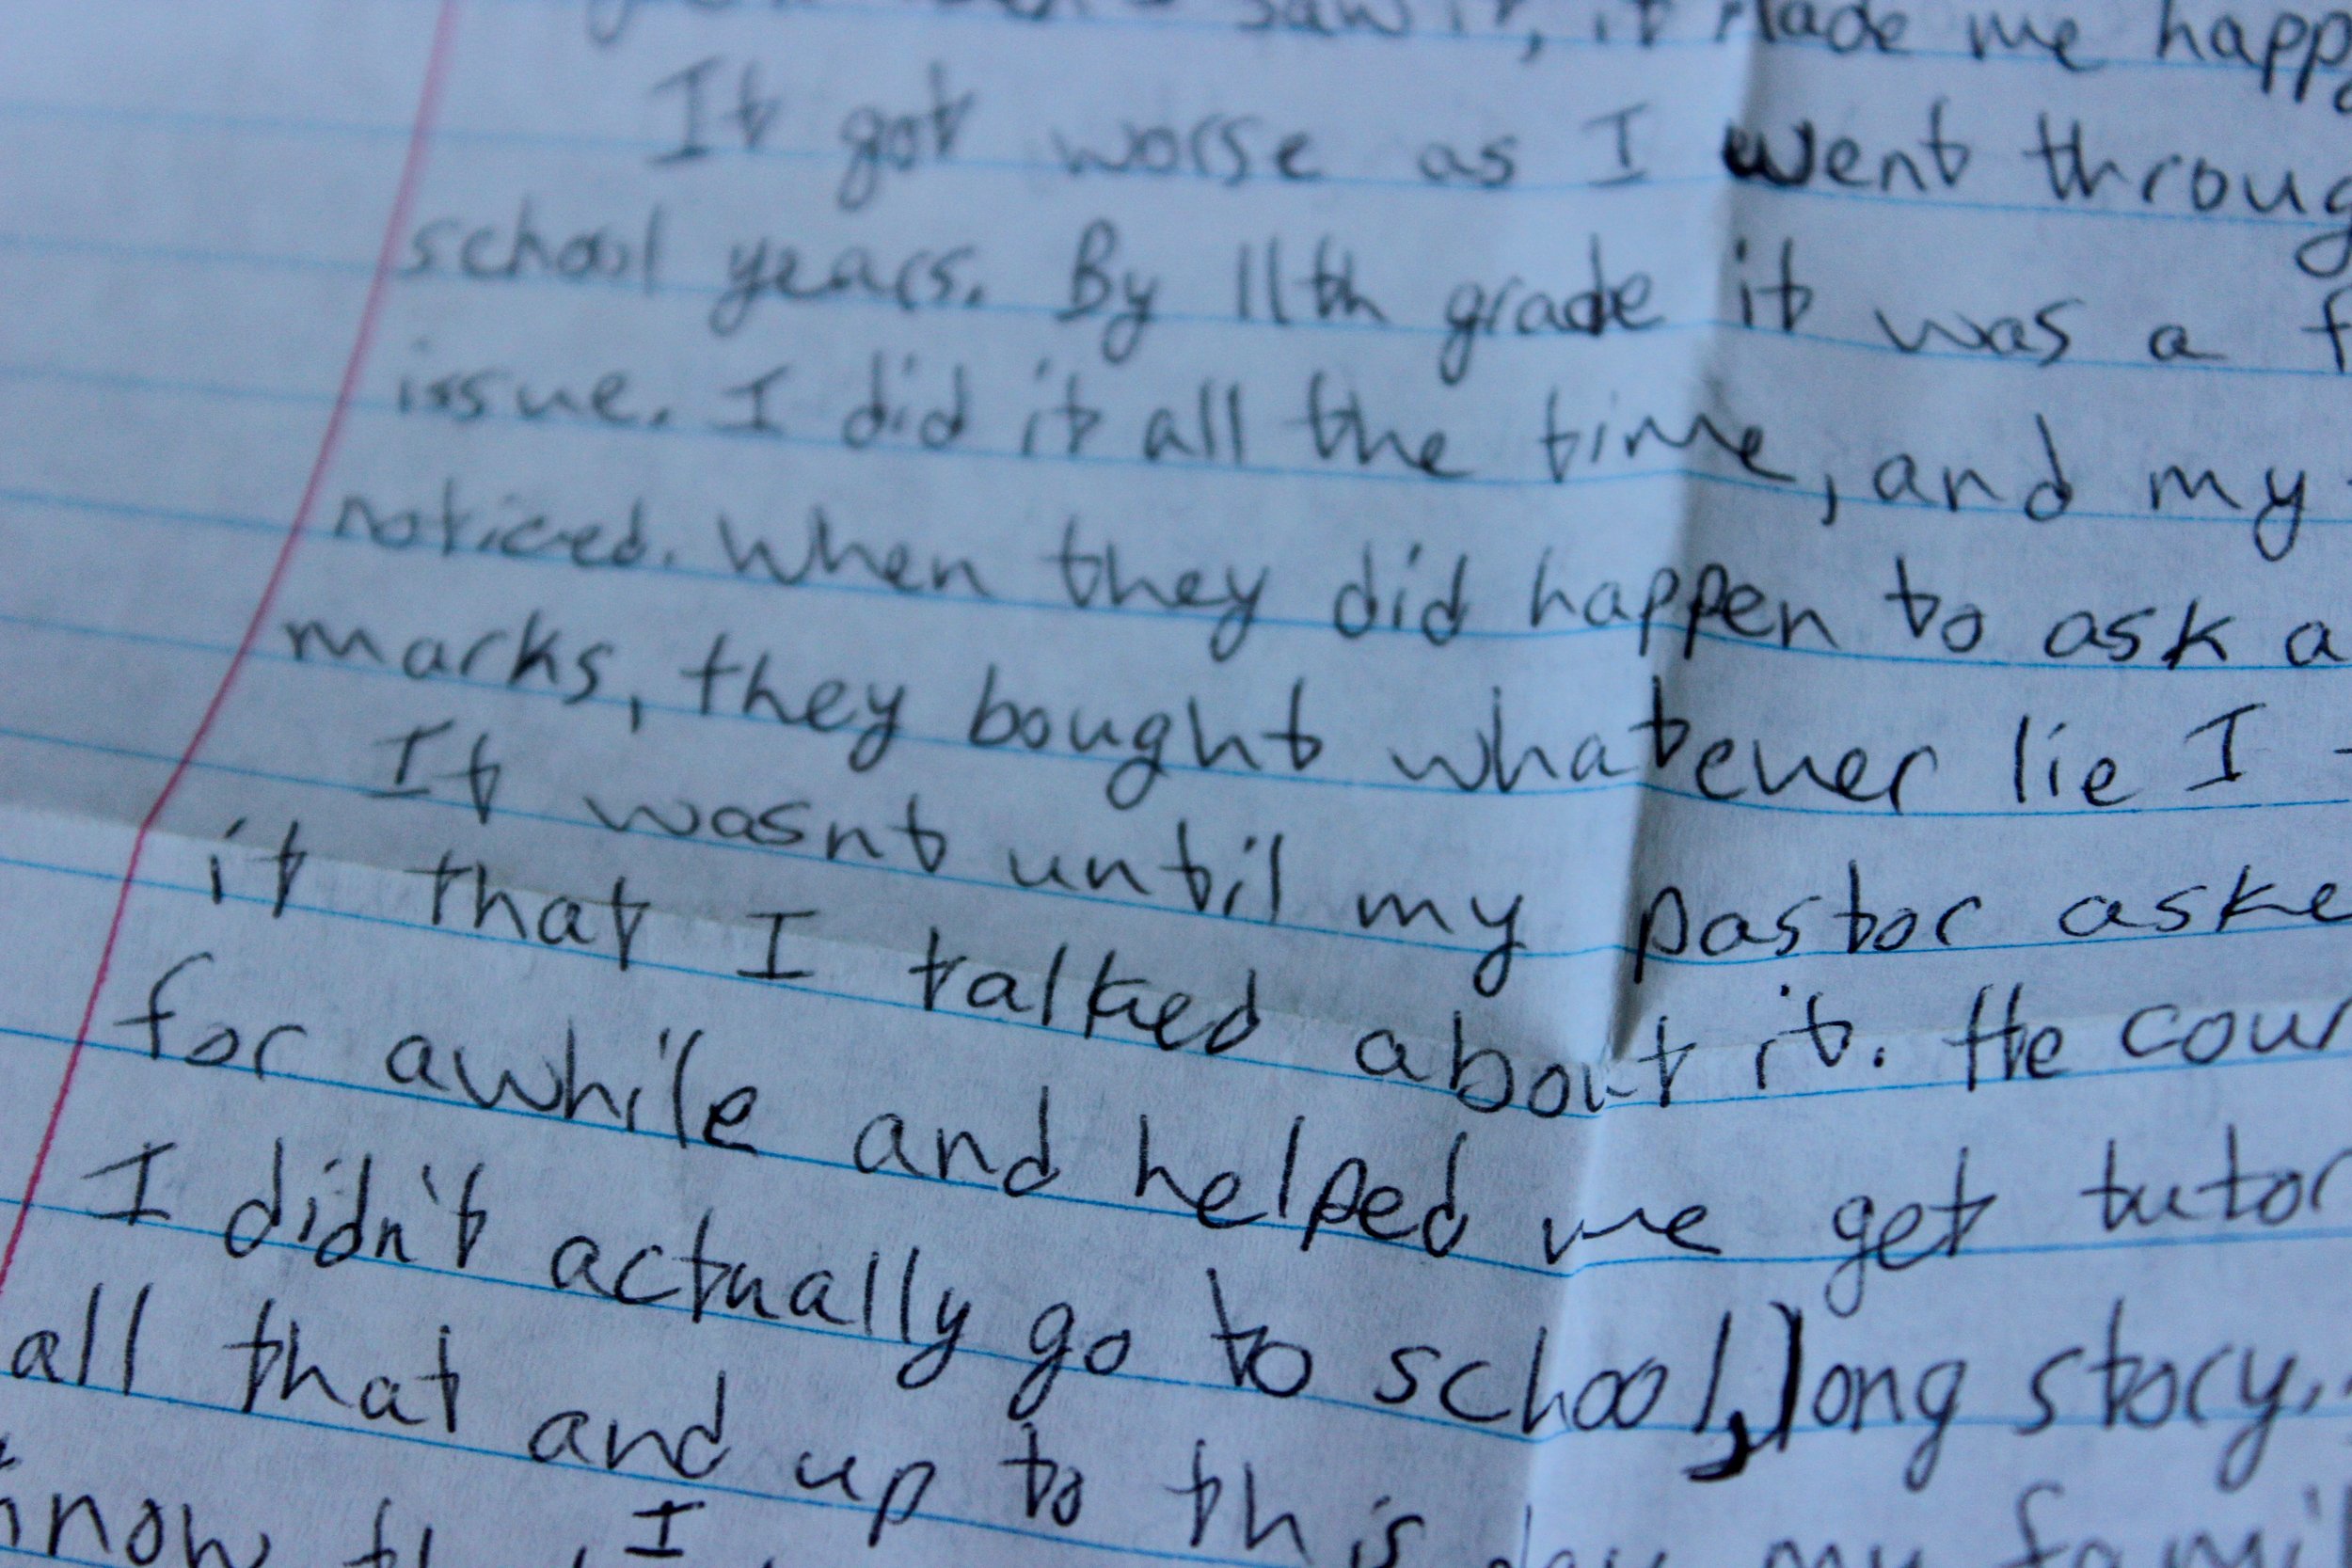 saw it, it made me happ
It got worse as I went throug
school years. By 11th grade it was a f
issue. I did it all the time, and my
noticed. When they did happen to ask a
marks, they bought whatever lie I
It wasnt until my pastor aske
it that I talked about it. He coun
for awhile and helped me get tutor
I didn't actually go to school, long story.
all that and up to this day my fami
know I